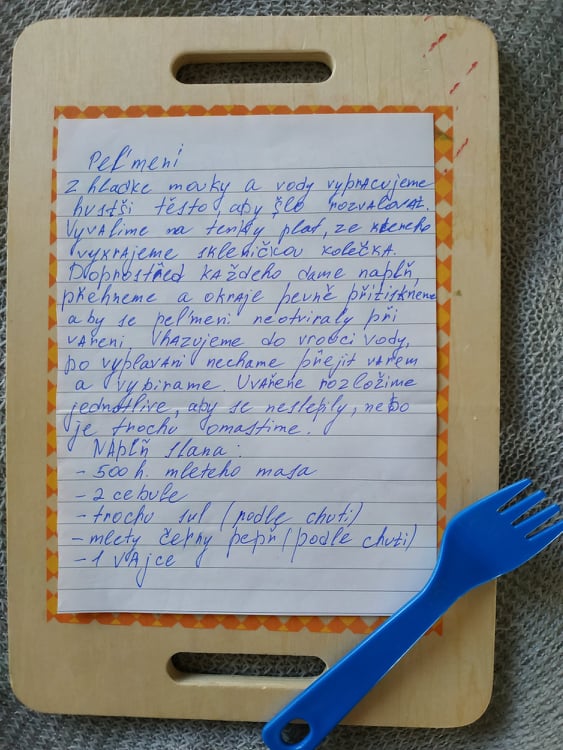 Pel'meni
Z hladke mouky a vody vypracujeme
hustši těsto, aby šlo rozvalovat.
Vyvalime na tenky plat, ze ktereho
vykrajeme skleničkou kolečka.
Doprostřed každeho dame naplň,
přehneme a okraje pevně přitiskneme
aby se pel'meni neotviraly při
vařeni. Vhazujeme do vrouci vody,
po vyplavani nechame přejit varem
a vybirame. Uvařene rozložime
jednotlive, aby se neslepily, nebo
je trochu omastime.
Naplň slana:
- 500 h. mleteho masa
- 2 cebule
- trochu sul (podle chuti)
- mlety černy pepř (podle chuti)
- 1 vajce